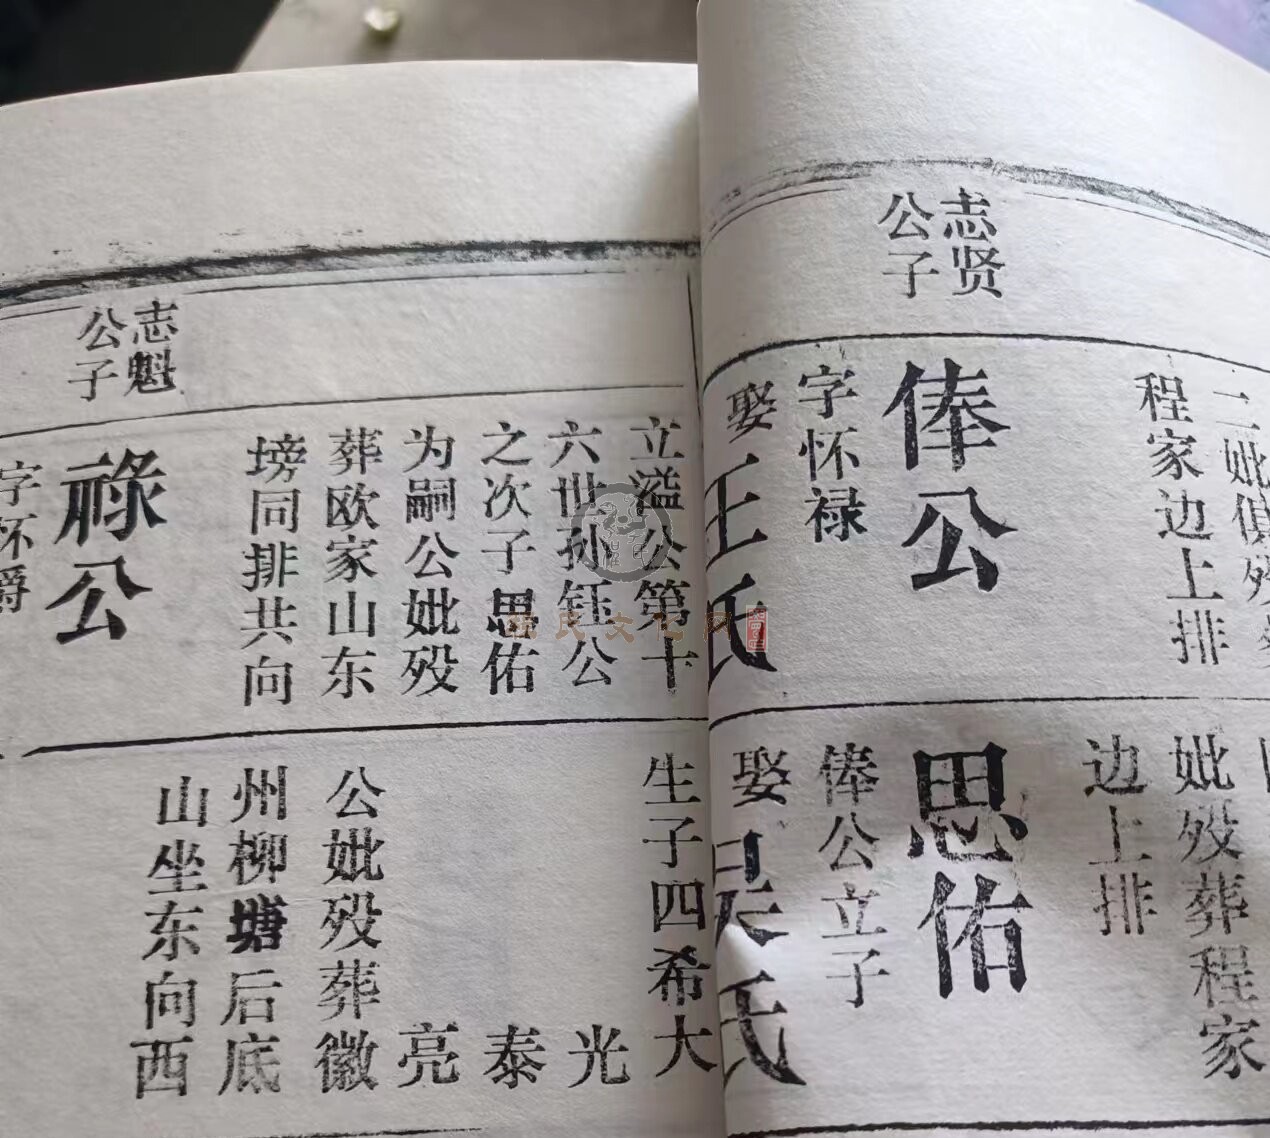 二妣俱殁葬
程家边上排
志贤
公子
俸公
字怀禄
娶王氏
妣殁葬程家
边上排
思佑
俸公立子
娶吴氏
立溢公第十
六世孙钰公
之次子思佑
为嗣公妣殁
葬欧家山东
塝同排共向
生子四希大
光
泰
亮
公妣殁葬徽
州柳塘后底
山坐东向西
志魁
公子
祿公
字怀爵